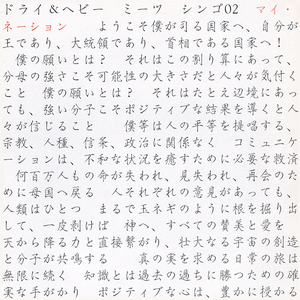 ドライ&ヘビー ミーツ シンゴ02 マイ・
ネーション ようこそ僕が司る国家へ、自分が
王であり、大統領であり、首相である国家へ!
僕の願いとは? それはこの割り算にあって、
分母の強さこそ可能性の大きさだと人々が気付く
こと 僕の願いとは? それはたとえ辺境にあっ
ても、強い分子こそポジティブな結果を導くと人
々が信じること 僕等は人の平等を提唱する、
宗教、人種、信条、政治に関係なく コミュニケ
ーションは、不和な状況を癒すために必要な救済
何百万人もの命が失われ、見失われ、再会のた
めに母国へ戻る 人それぞれの意見があっても、
人類はひとつ まるで玉ネギのように根を掘り出
して、一皮剥けば 神へ、すべての賛美と愛を
天から降る力と直接繋がり、壮大なる宇宙の創造
と分子が共鳴する 真の実を求める日常の旅は
無限に続く 知識とは過去の過ちに勝つための確
実な手がかり ポジティブな心は、豊かで健康な